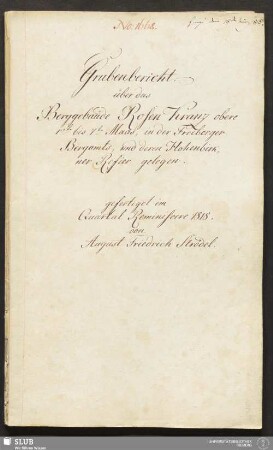 No. 166a.
Grubenbericht
über das
Berggebäude Rosen Kranz obere
7te bis 9te Maas, in der Freiberger
Bergamts, und deren Hohenbirk
ner Refier gelegen.
gefertiget im
Quartal Reminiscere 1818.
von
August Friedrich Ströbel.
SLUB
Wir führen Wissen.